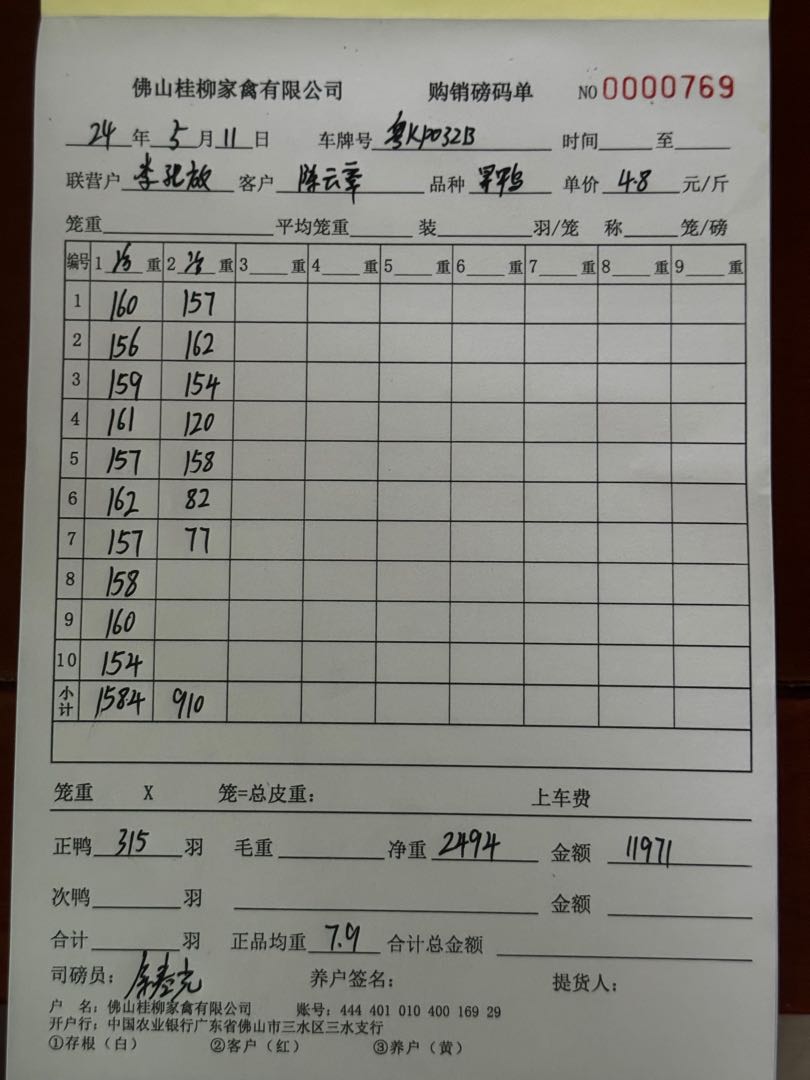 佛山桂柳家禽有限公司 购销磅码单 NO 0000769
24 年 5 月 11 日 车牌号 粤KP032B 时间 至
联营户 李孔放 客户 陈云章 品种 单价 4.8 元/斤
笼重 平均笼重 装 羽/笼 称 笼/磅
编号 1 重 2 重 3 重 4 重 5 重 6 重 7 重 8 重 9 重
1 160 157
2 156 162
3 159 154
4 161 120
5 157 158
6 162 82
7 157 77
8 158
9 160
10 154
小计 1584 910
笼重 X 笼=总皮重： 上车费
正鸭 315 羽 毛重 净重 2494 金额 11971
次鸭 羽 金额
合计 羽 正品均重 7.9 合计总金额
司磅员： 养户签名： 提货人：
户 名：佛山桂柳家禽有限公司 账号：444 401 010 400 169 29
开户行：中国农业银行广东省佛山市三水区三水支行
①存根（白） ②客户（红） ③养户（黄）